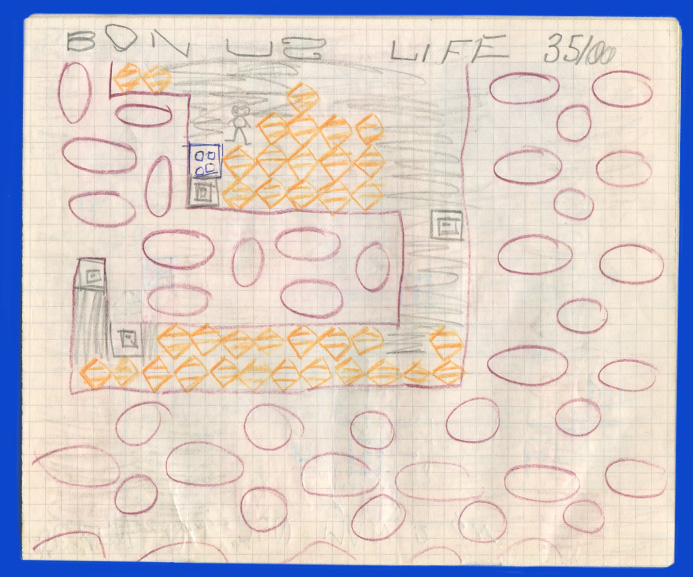 BONUS LIFE 35/00